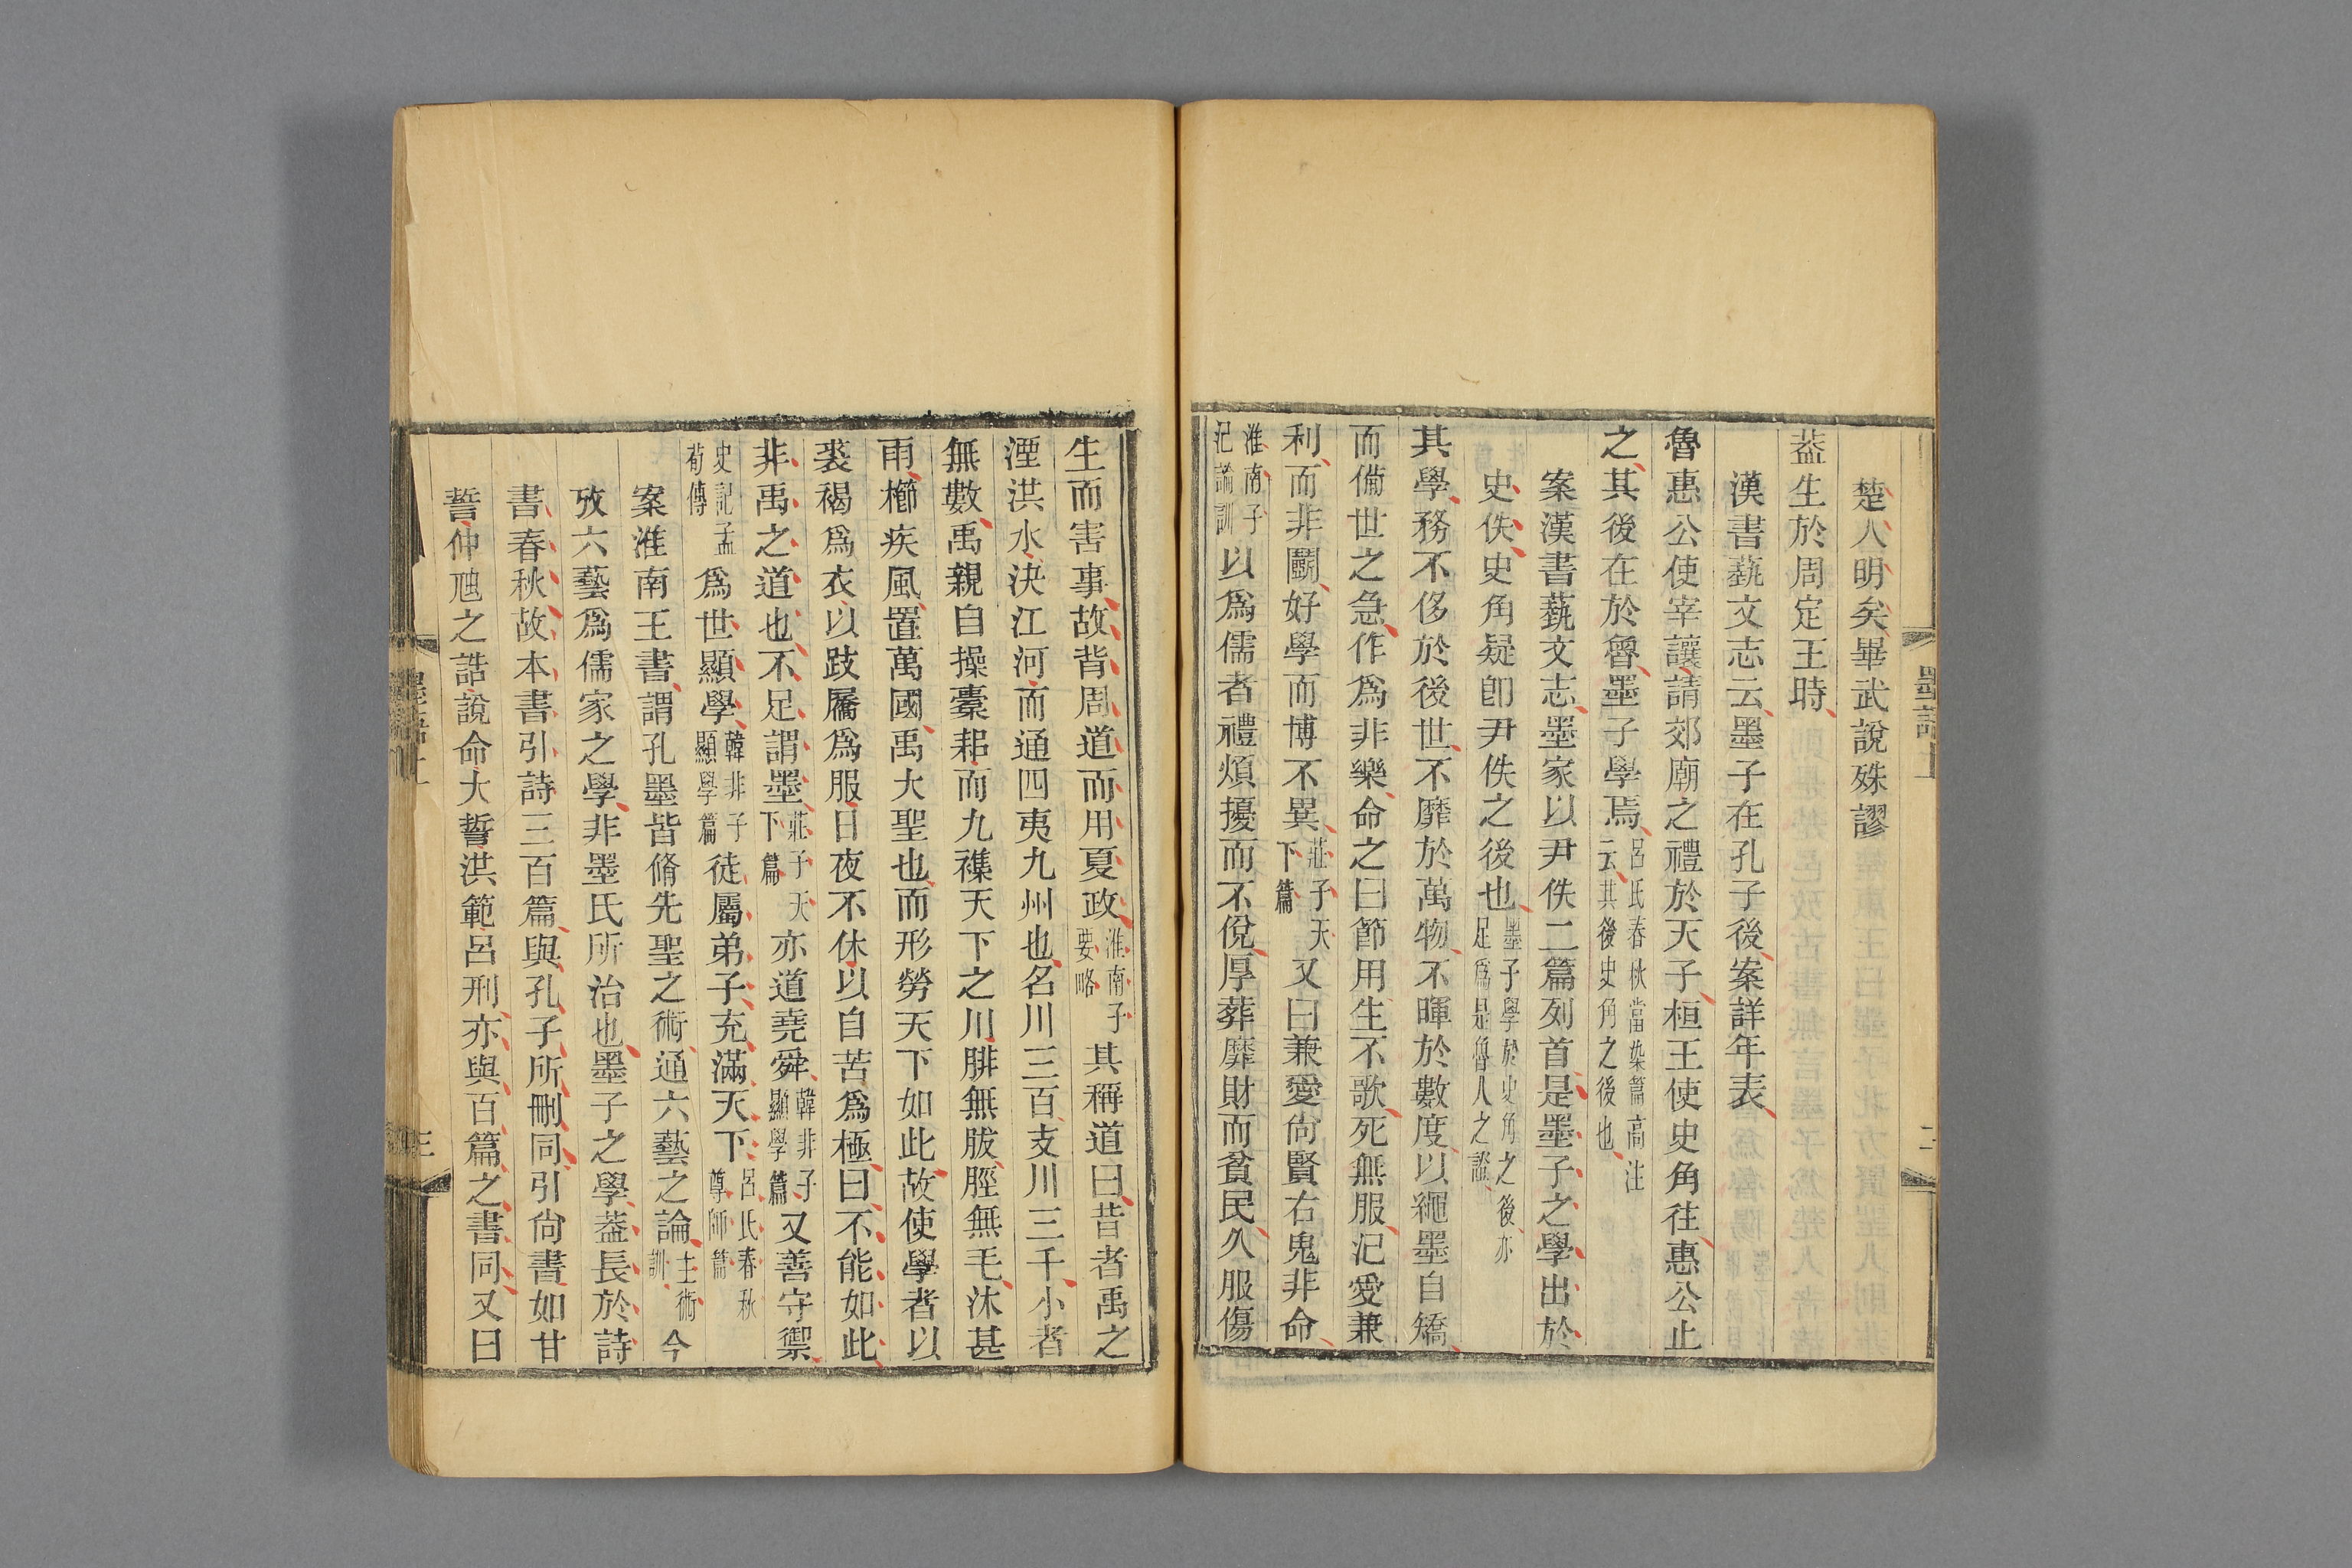 楚人明矣畢武說殊謬
葢生於周定王時
漢書蓺文志云墨子在孔子後案詳年表
魯惠公使宰讓請郊廟之禮於天子桓王使史角往惠公止
之其後在於魯墨子學焉呂氏春秋當染篇高注云其後史角之後也
案漢書蓺文志墨家以尹佚二篇列首是墨子之學出於
史佚史角疑卽尹佚之後也墨子學於史角之後亦足爲是魯人之證
其學務不侈於後世不靡於萬物不暉於數度以繩墨自矯
而備世之急作爲非樂命之曰節用生不歌死無服氾愛兼
利而非鬭好學而博不異莊子天下篇又曰兼愛尙賢右鬼非命
淮南子氾論訓以爲儒者禮煩擾而不侻厚葬靡財而貧民久服傷
墨語上
二
生而害事故背周道而用夏政淮南子要略其稱道曰昔者禹之
湮洪水決江河而通四夷九州也名川三百支川三千小者
無數禹親自操橐耜而九襍天下之川腓無胈脛無毛沐甚
雨櫛疾風置萬國禹大聖也而形勞天下如此故使學者以
裘褐爲衣以跂屩爲服日夜不休以自苦爲極曰不能如此
非禹之道也不足謂墨莊子天下篇亦道堯舜韓非子顯學篇又善守禦
史記孟荀傳爲世顯學韓非子顯學篇徒屬弟子充滿天下呂氏春秋尊師篇
案淮南王書謂孔墨皆脩先聖之術通六藝之論主術訓今
攷六藝爲儒家之學非墨氏所治也墨子之學葢長於詩
書春秋故本書引詩三百篇與孔子所刪同引尙書如甘
誓仲虺之誥說命大誓洪範呂刑亦與百篇之書同又曰
墨語上
三